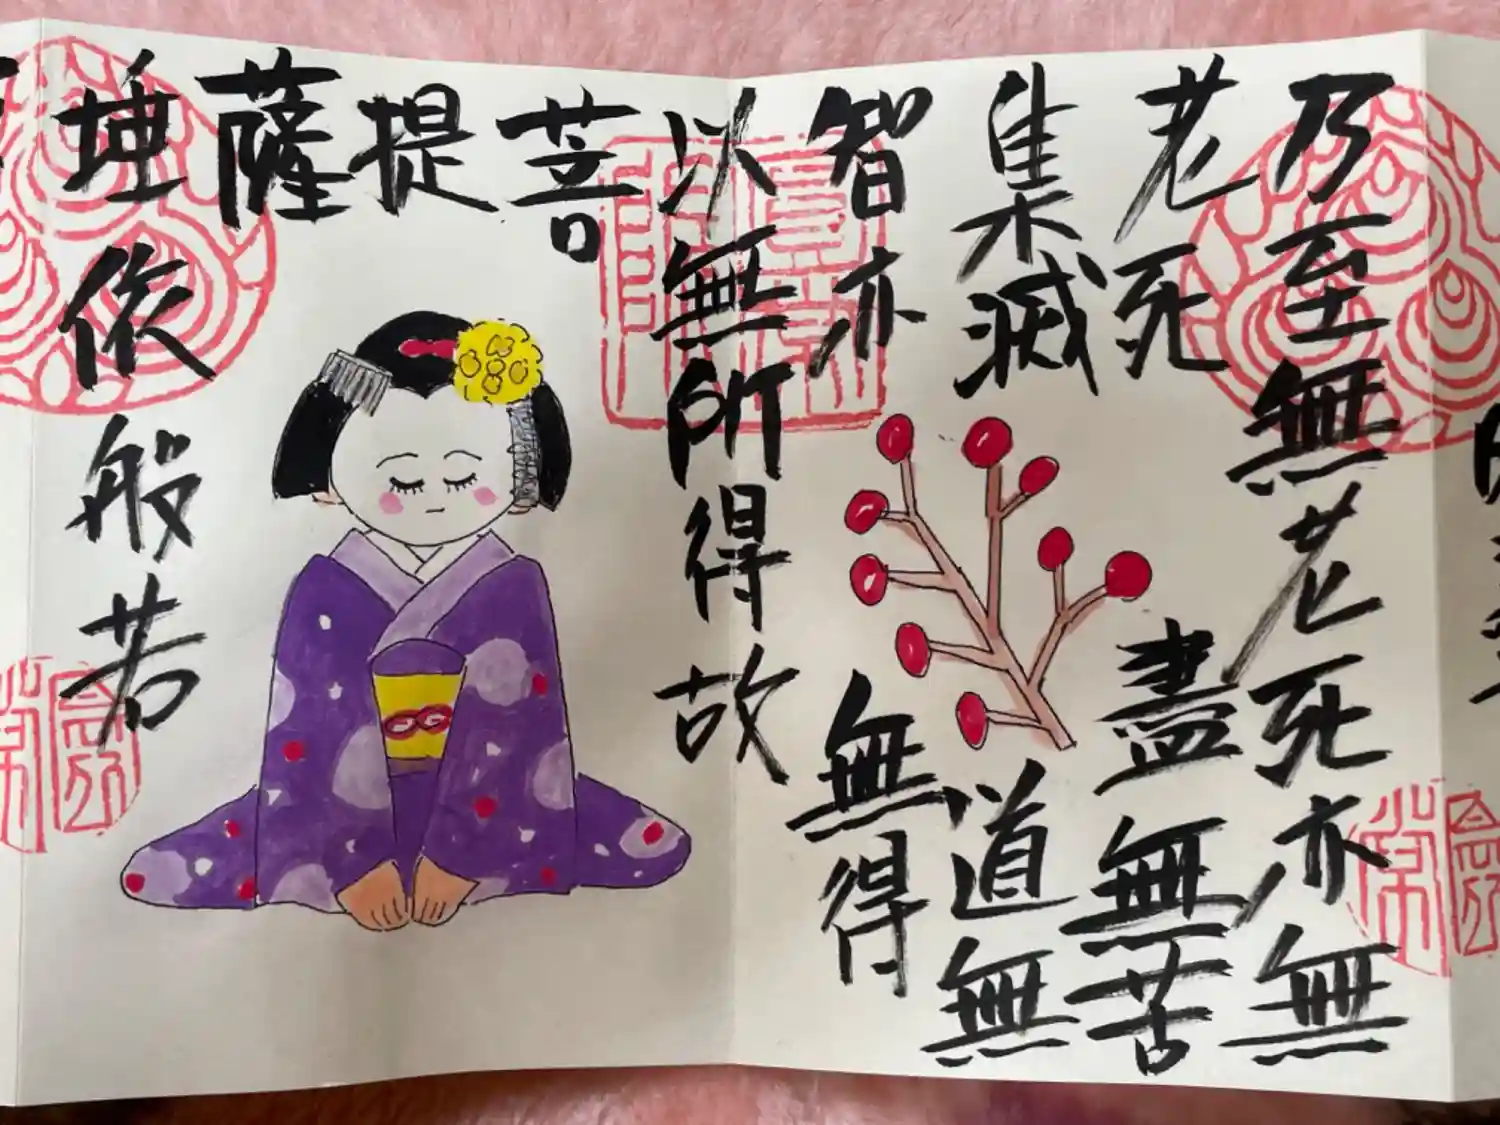 乃至無老死亦無
老死盡無苦
集滅道無
智亦無得
以無所得故
菩
提
薩
埵依般若